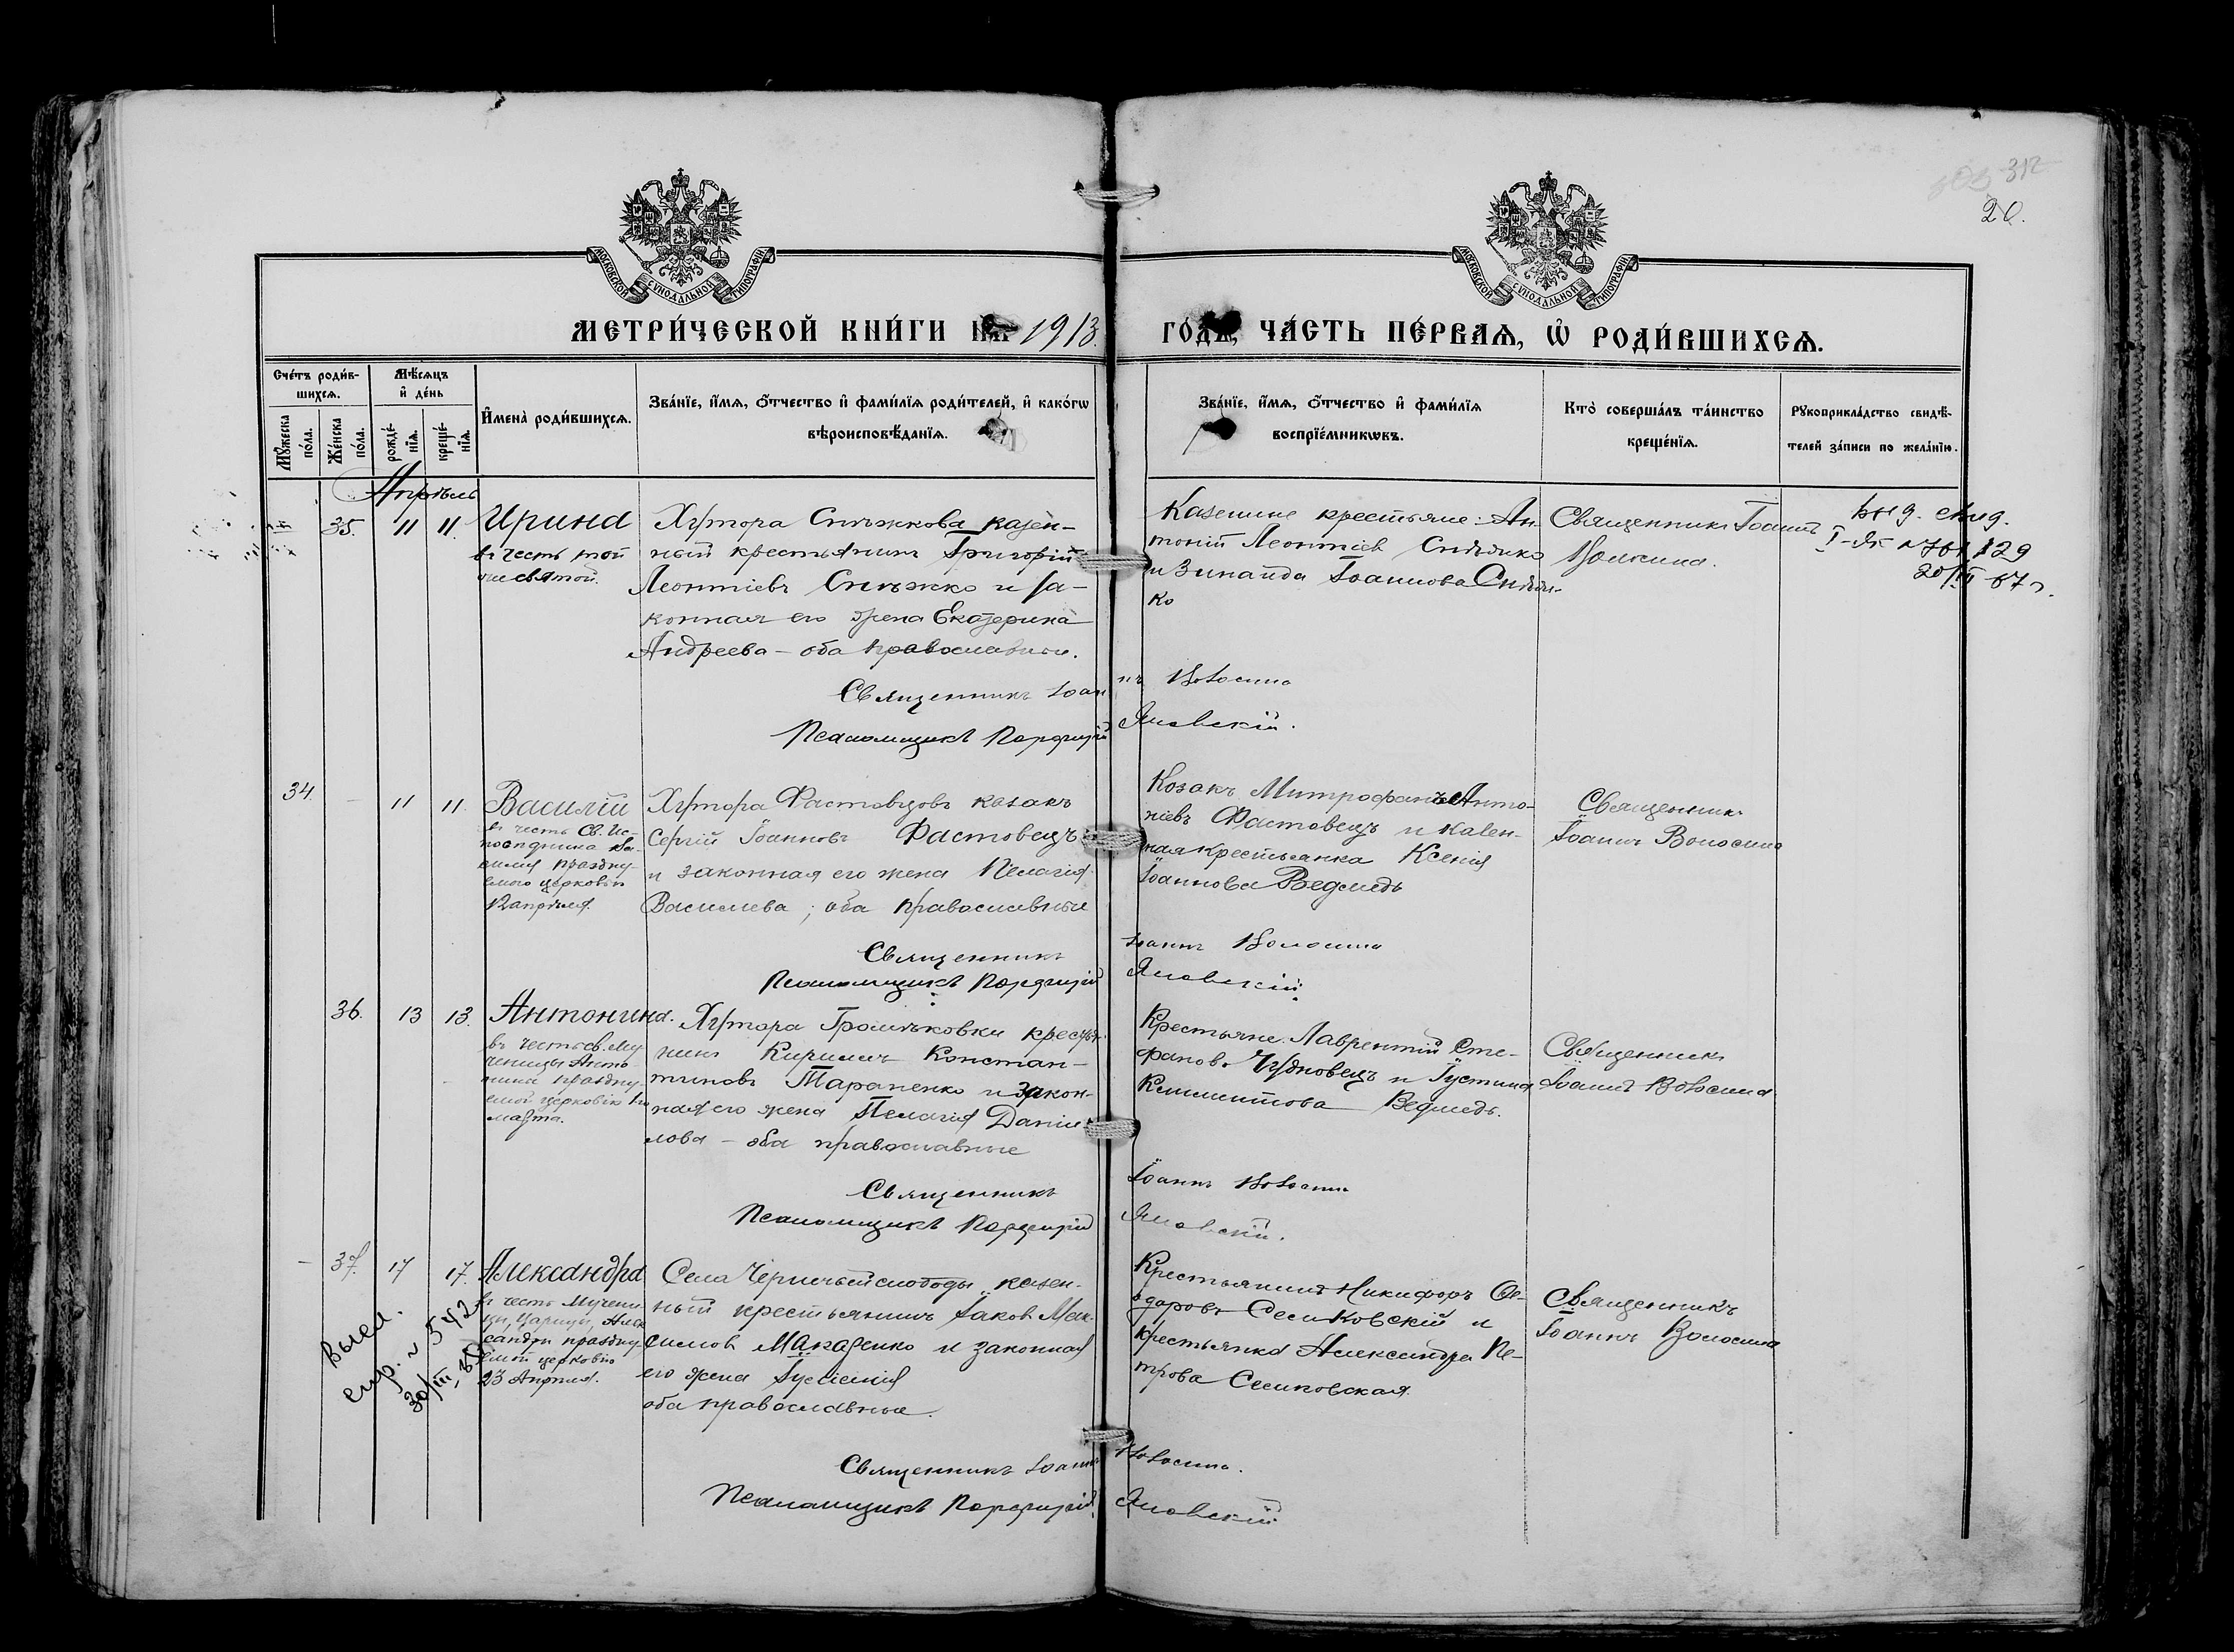 312
20.
МОСКОВСКОЙ СѴНОДАЛЬНОЙ ТИПОГРАФІИ
МОСКОВСКОЙ СѴНОДАЛЬНОЙ ТИПОГРАФІИ
МЕТРИ́ЧЕСКОЙ КНИ́ГИ НА 1913.
ГО́ДЪ, ЧА́СТЬ ПЕ́РВАѦ, Ѡ҆ РОДИ́ВШИХСѦ.
Сче́тъ роди́в-
шихсѧ.
Мꙋ́жеска
по́ла.
Же́нска
по́ла.
Мѣ́сѧцъ
и҆ де́нь
рожде́-
нїѧ.
креще́-
нїѧ.
И҆мена̀ роди́вшихсѧ.
Зва́нїе, и҆́мѧ, ѻ҆́тчество и҆ фами́лїѧ роди́телей, и҆ како́гѡ
вѣроисповѣ́данїѧ.
Зва́нїе, и҆́мѧ, ѻ҆́тчество и҆ фами́лїѧ
воспрїе́мникѡвъ.
Кто̀ соверша́лъ та́инство
креще́нїѧ.
Рꙋкоприкла́дство свидѣ́-
телей за́писи по жела́нїю.
Апрѣль
35. 11 11. Ирина
въ честь той
же святой.
Хутора Снѣжкова казен-
ный крестьянинъ Григорій
Леонтіевъ Снѣжко и за-
конная его жена Екатерина
Андреева - оба православные.
Казенные крестьяне: Ан-
тоній Леонтіевъ Снѣжко
и Зинаида Іоаннова Снѣж-
ко
Священникъ Іоаннъ
Волосина.
выд. свид.
Священникъ Іоаннъ Волосина
Псаломщикъ Порфирій Яновскій.
34. - 11 11. Василій
въ честь Св. Ис-
повѣдника Ва-
силія праздну-
емаго церковію
12 апрѣля.
Хутора Фастовцовъ казакъ
Сергій Іоанновъ Фастовецъ
и законная его жена Пелагія
Васильева; оба православные
Козакъ Митрофанъ Анто-
ніевъ Фастовецъ и казен-
ная крестьянка Ксенія
Іоаннова Ведмедь
Священникъ
Іоаннъ Волосина
Священникъ Іоаннъ Волосина
Псаломщикъ Порфирій Яновскій.
36. 13 13. Антонина.
въ честь св. му
ченицы Анто-
нины праздну-
емой церковію 1го
марта.
Хутора крестья-
нинъ Кириллъ Констан-
тиновъ Тараненко и закон-
ная его жена Пелагія Даніи-
лова - оба православные
Крестьяне Лаврентій Сте-
фановъ Чудновецъ и Іустина
Климентова Ведмедь.
Священникъ
Іоаннъ Волосина
Священникъ Іоаннъ Волосина
Псаломщикъ Порфирій Яновскій.
- 37. 17 17. Александра
въ честь мучени-
цы, Царицы, Алек-
сандры праздну-
емой церковію
23 Апрѣля.
Села Черничьей слободы казен-
ный крестьянинъ Іаковъ Мак-
симовъ Макаренко и законная
его жена
оба православные.
Крестьянинъ Никифоръ Ѳе-
одоровъ Сепиковскій и
крестьянка Александра Пе-
трова Сепиковская.
Священникъ
Іоаннъ Волосина
Священникъ Іоаннъ Волосина.
Псаломщикъ Порфирій Яновскій